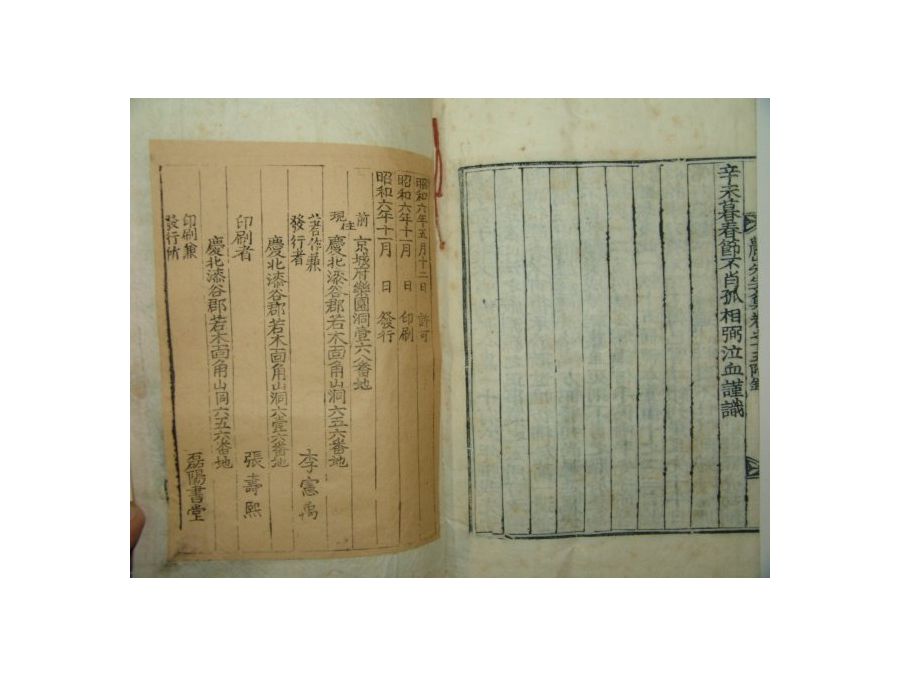 辛未暮春節不肖孤相弼泣血謹識
先生文集卷之十五附錄
昭和六年五月十二日 許可
昭和六年十一月 日 印刷
昭和六年十一月 日 發行
前 京城府樂園洞壹六八番地
現住 慶北漆谷郡若木面角山洞六五六番地
著作兼發行者 李憲禹
慶北漆谷郡若木面角山洞六壹六番地
印刷者 張壽熙
慶北漆谷郡若木面角山洞六五六番地
印刷兼發行所 磊陽書堂